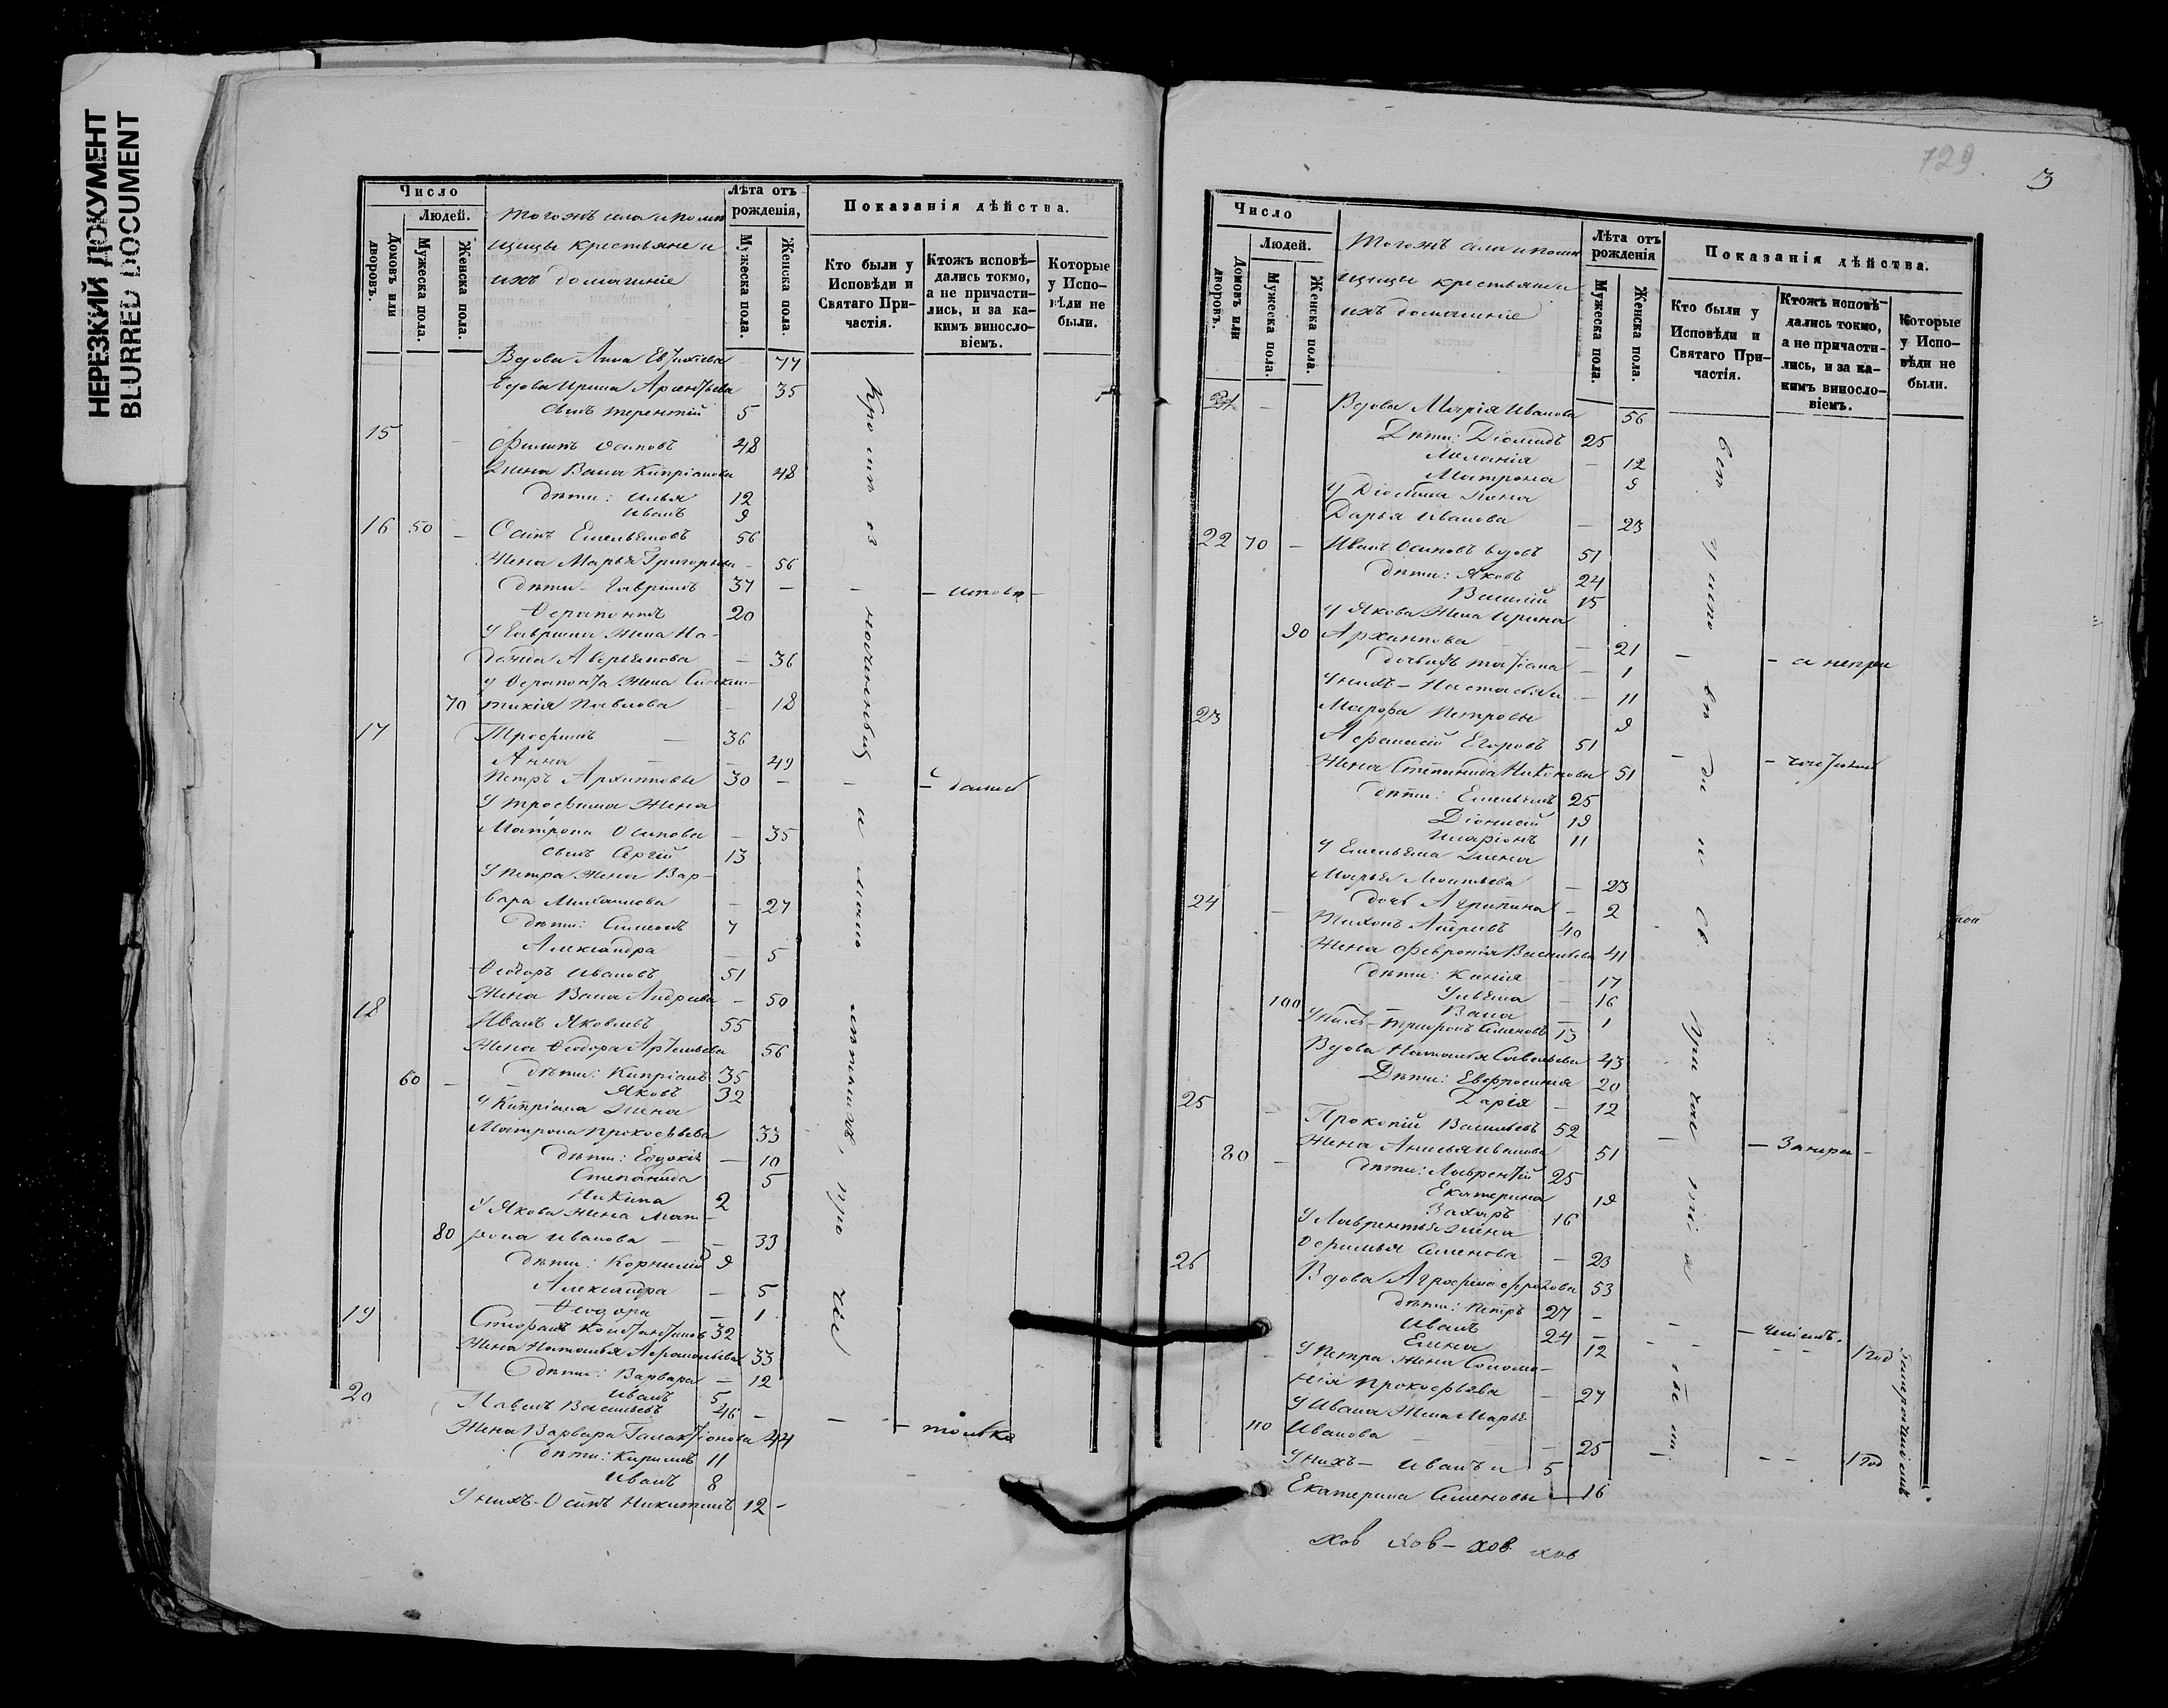 НЕРЕЗКИЙ ДОКУМЕНТ
BLURRED DOCUMENT
Число
Людей.
Домовъ или дворовъ.
Мужеска пола.
Женска пола.
Тогожъ села и помѣ
щицы крестьяне и
ихъ домашніе
Лѣта отъ рожденія,
Мужеска пола.
Женска пола.
Показанія дѣйства.
Кто были у Исповѣди и Святаго При-частія.
Ктожъ исповѣ-дались токмо, а не причасти-лись, и за ка-кимъ виносло-віемъ.
Которые у Испо-вѣди не были.
Вдова Анна Евтихіева - 77
Вдова Ирина Арсентьева 35
сынъ Терентій 5
15 - Филипъ Осиповъ 48
Жена Васа Кипріанова 48
дѣти: Илья 12
Иванъ 9
16 50 - Осипъ Емельяновъ 56
Жена Марья Григорьева - 56
дѣти - Гавріилъ 37 - - - исповѣ -
Ѳерапонтъ 20
У Гавріила жена На-
дежда Аверьянова - 36
У Ѳерапонта жена
70 Павлова - 18
17 Трофимъ - 36
Анна - - 49
Петръ Архиповы 30 - - - дались
У Трофима жена
Матрона Осипова - 35
сынъ Сергій 13
У Петра жена Вар-
вара Михаилова - 27
дѣти: Симеонъ 7
Александра - 5
Ѳеодоръ Ивановъ 51
Жена Васа Андреева - 50
18 Иванъ Яковлевъ 55
Жена Ѳеодора Артемьева 56
60 - дѣти: Кипріанъ 35
Яковъ 32
У Кипріана жена
Матрона Прокофьева 33
дѣти: Евдокія - 10
Степанида 5
Никита 2
У Якова жена Мат-
80 рона Иванова - - 33
дѣти: Корнилій 9
Александра - 5
Ѳеодора - 1
19 Стефанъ Константиновъ 32
Жена Наталья Афанасьева 33
дѣти: Варвара - 12
Иванъ 5
20 Павелъ Васильевъ 46 - - - - только
Жена Варвара Галактіонова 44
дѣти: Кирилъ 11
Иванъ 8
У нихъ - Осипъ Никитинъ 12 -
Кромѣ означенныхъ и малолѣтнихъ, про чіе
729
3
Число
Людей.
Домовъ или дворовъ.
Мужеска пола.
Женска пола.
Тогожъ села и помѣ
щицы крестьяне и
ихъ домашніе
Лѣта отъ рожденія
Мужеска пола.
Женска пола.
Показанія дѣйства.
Кто были у Исповѣди и Святаго При-частія.
Ктожъ исповѣ-дались токмо, а не причасти-лись, и за ка-кимъ виносло-віемъ.
Которые у Испо-вѣди не были.
21 - Вдова Марія Иванова 56
Дѣти: Діомидъ 25
Меланія - 12
Матрона 9
У Діомида жена
Дарья Иванова - 23
22 70 - Иванъ Осиповъ вдовъ 51
дѣти: Яковъ 24
Василій 15
У Якова жена Ирина
90 Архипова - 21 - - а непри
дочь ихъ Татіана - 1
У нихъ - Настасья и - 11
Марфа Петровы 9
23 Афанасій Егоровъ 51
Жена Степанида Никонова 51 - - частились
дѣти: Емельянъ 25
Діонисій 19
Иларіонъ 11
У Емельяна жена
Марья Леонтьева - 23
дочь Агрипина - 2
24 - Тихонъ Андреевъ 40
Жена Февронія Васильева 41
дѣти: Ксенія - 17
Ульяна - 16
100 - Васа - 1
У нихъ - Григорій Семеновъ 13
Вдова Наталья Савельева 43
Дѣти: Евфросинія 20
Дарія - 12
25 - Прокопій Васильевъ 52
Жена Анисья Иванова 51 - - Занера -
80 - дѣти: Лаврентій 25
Екатерина 19
Захаръ 16
У Лаврентья жена
Семенова - 23
26 Вдова Агрофена Фролова 53
дѣти: Петръ 27 -
Иванъ 24 - - - ченіемъ.
Елена 12 - - - 1 год
У Петра жена Соломо-
нія Прокофьева - 27
У Ивана жена Марья
110 Иванова - 25 - - - 1 год
У нихъ - Иванъ и 5
Екатерина Семеновы - 16
всѣ у исповѣди и Св. причастія были